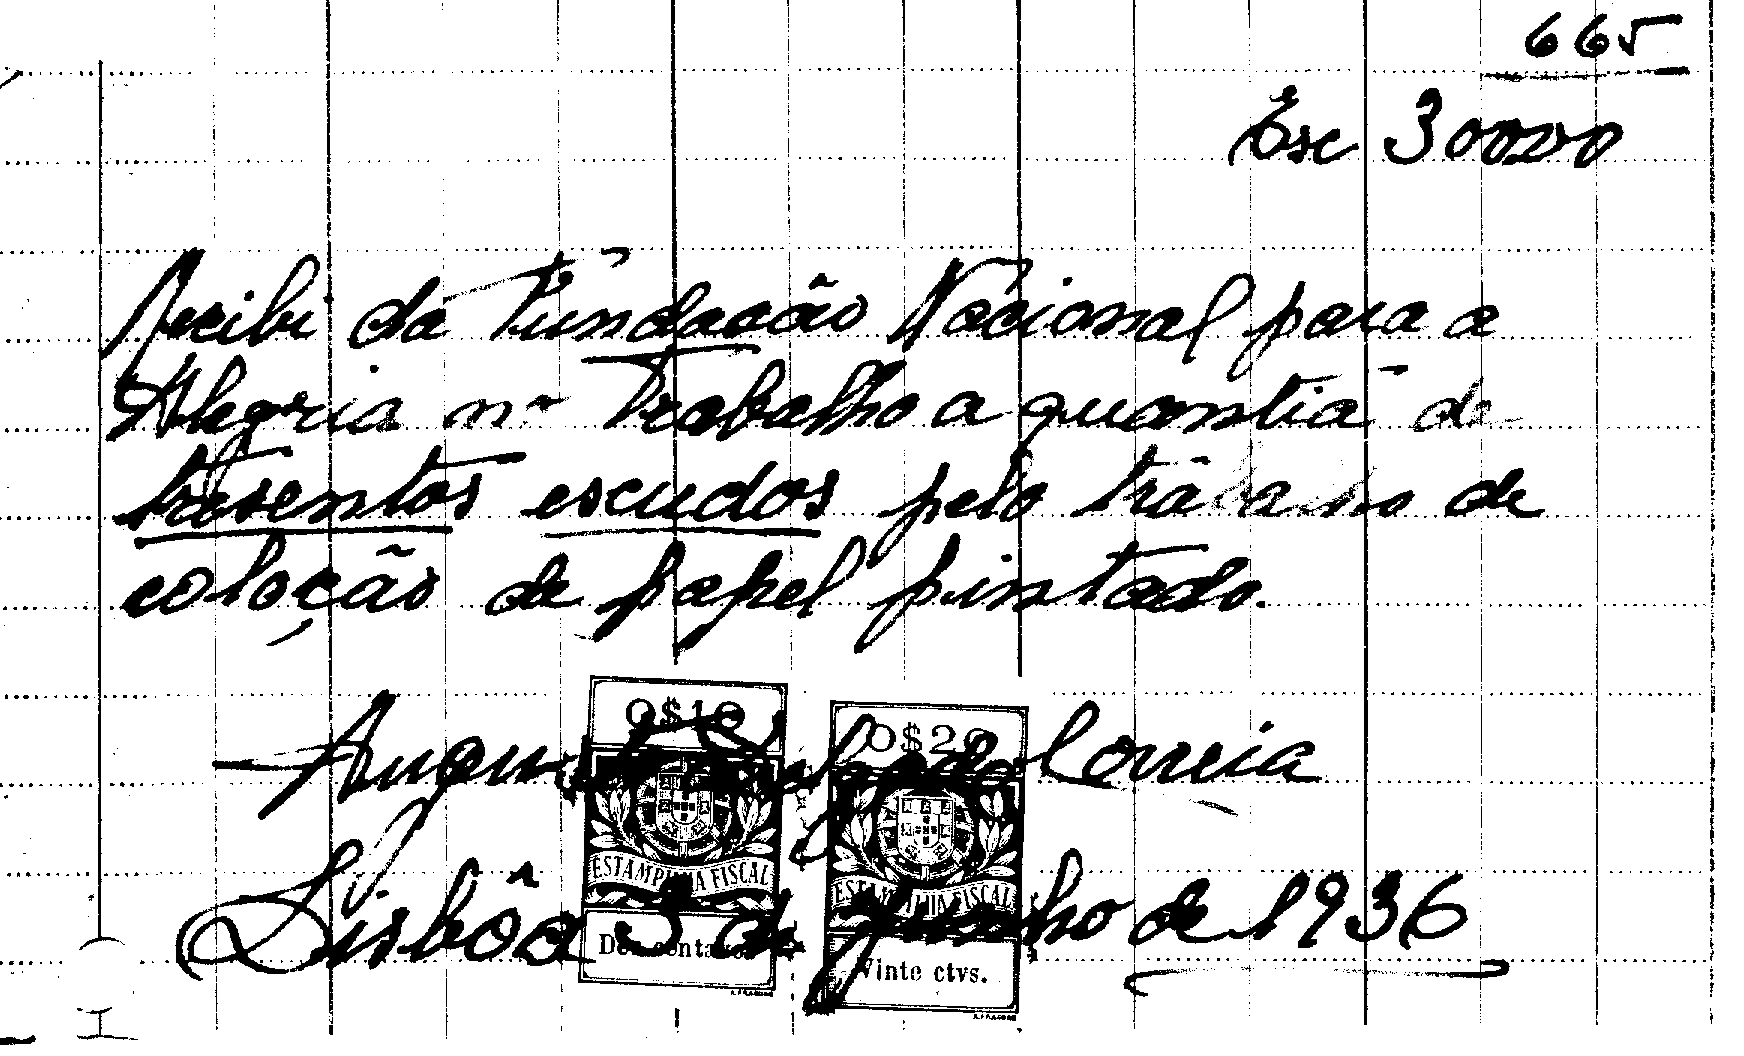 665
Esc 30000
Recibi da Fundação Nacional para a
Alegria no Trabalho a quantia de
tresentos escudos pelo trabalho de
coloção de papel pintado.
O$10 O$20
Correia
ESTAMPILHA FISCAL ESTAMPILHA FISCAL
Lisbôa 3 de Junho de 1936
Dez centavos Vinte ctvs.